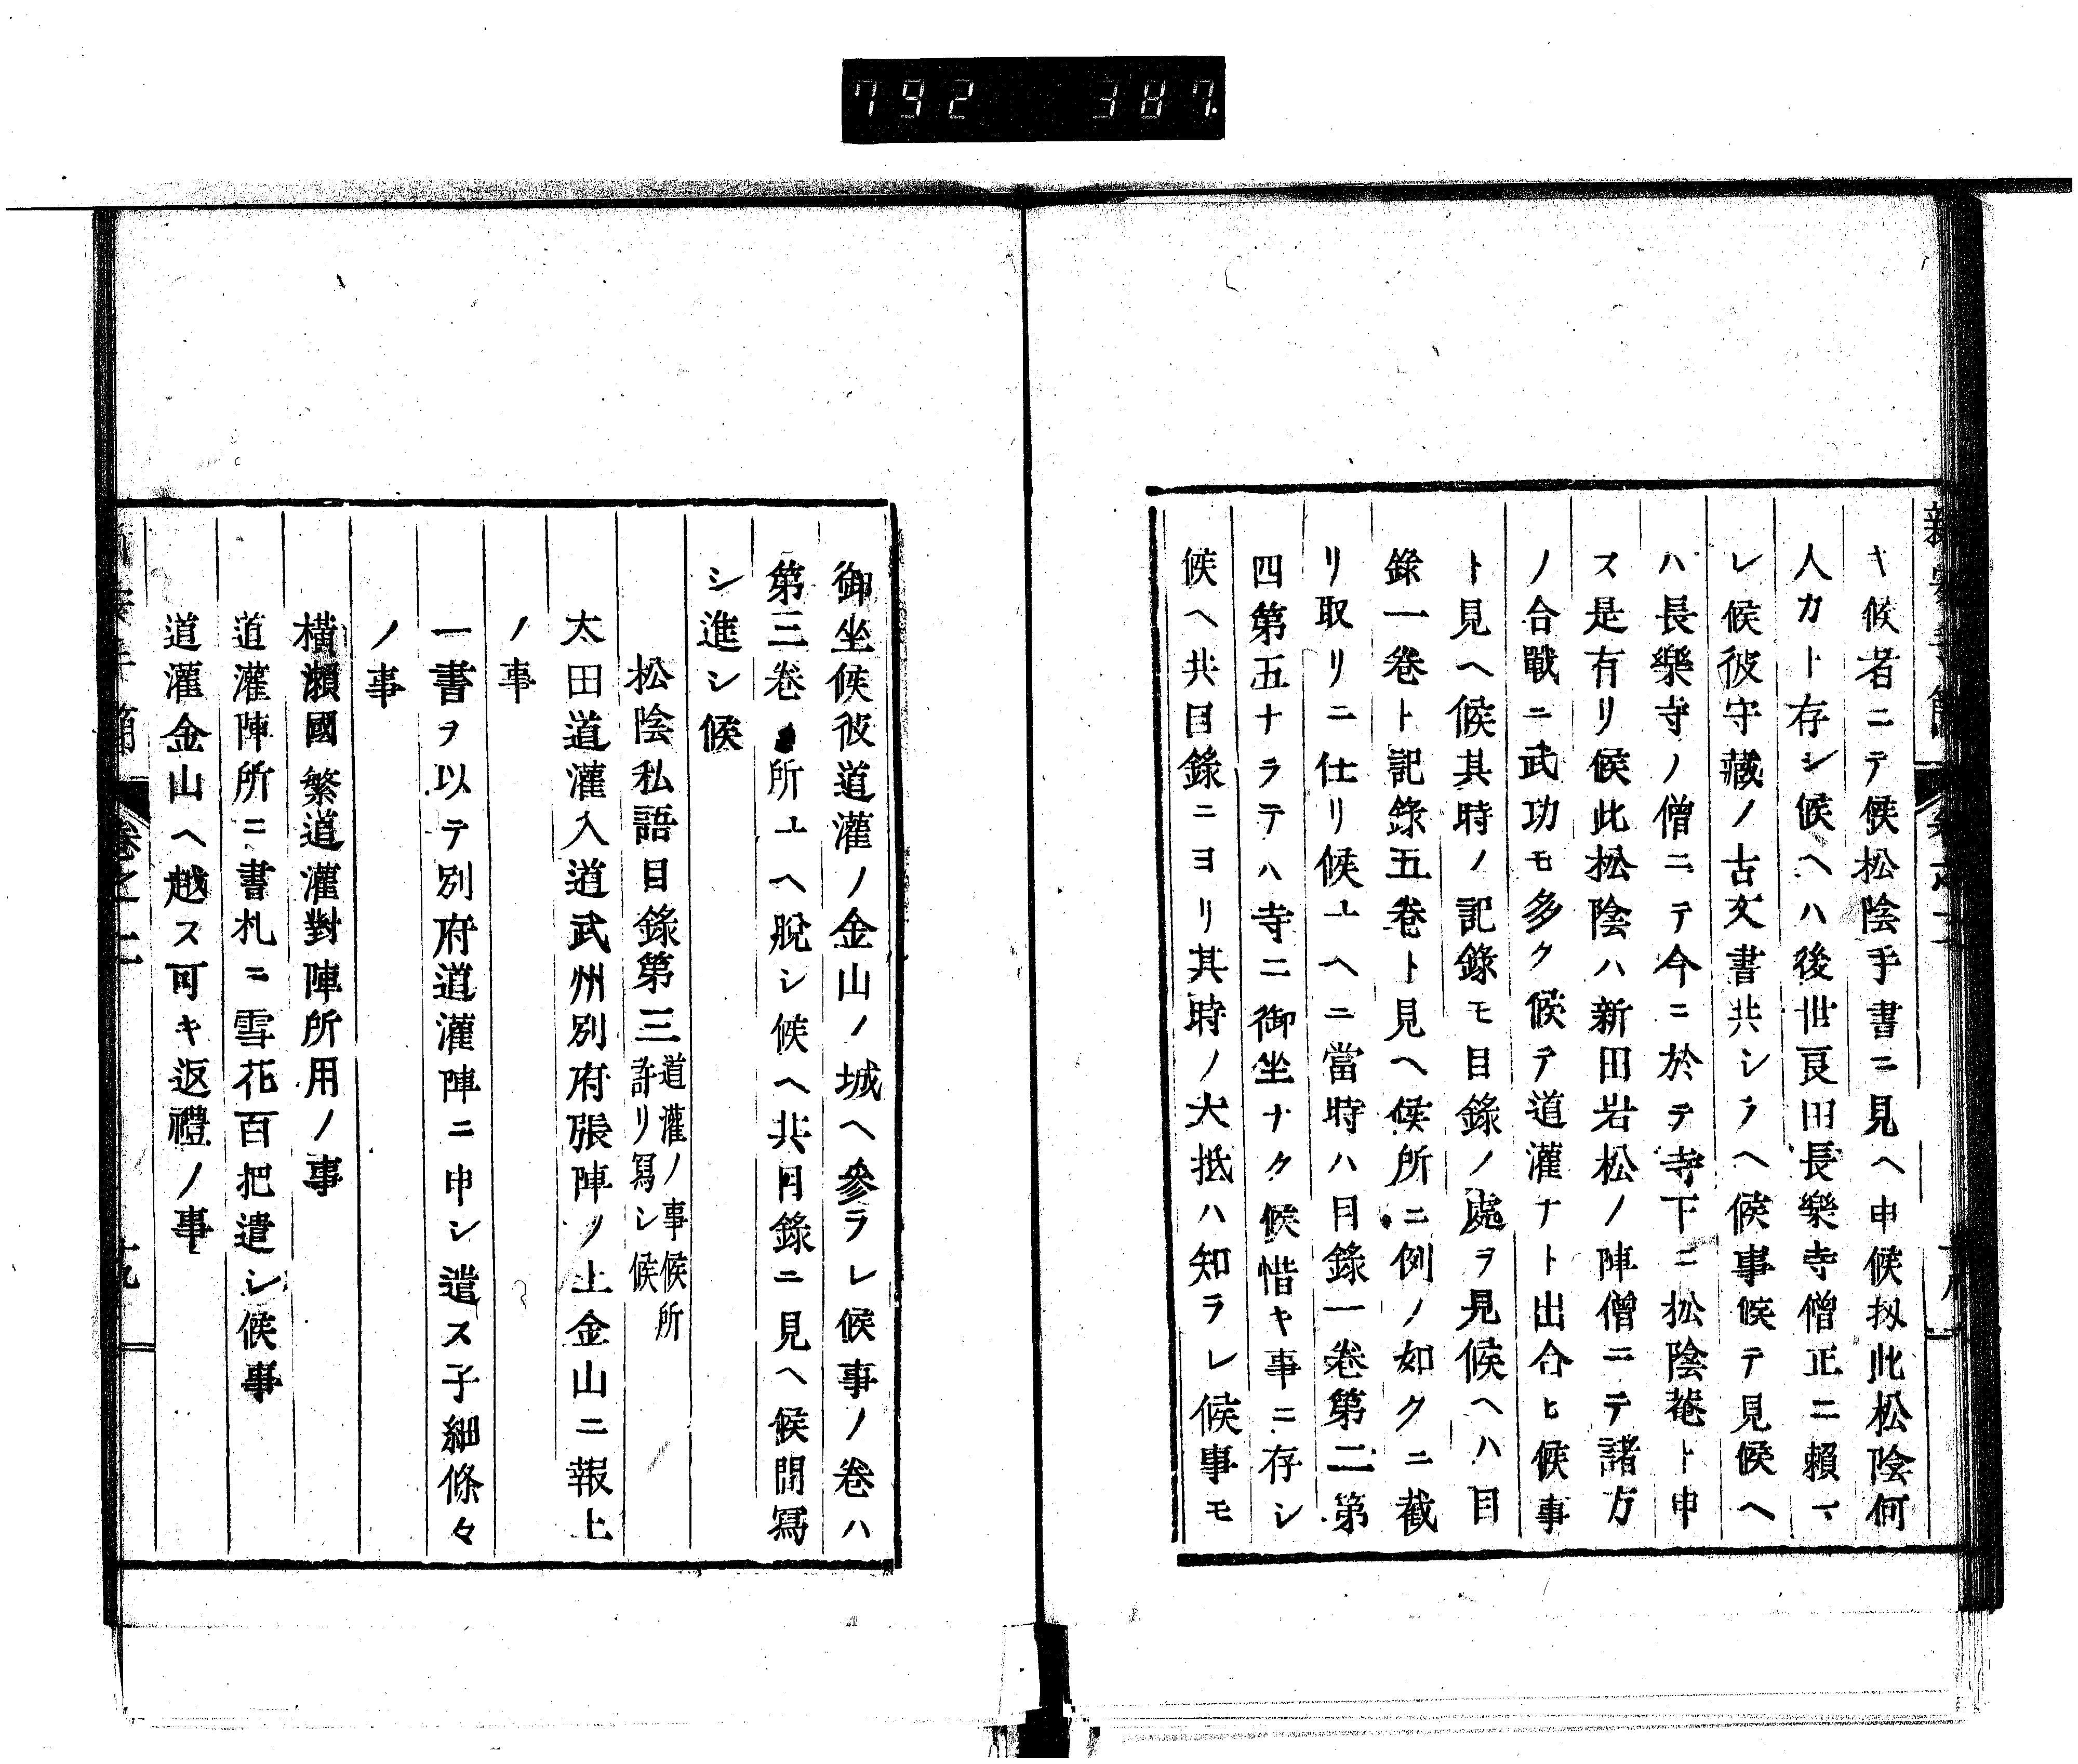 792 387
キ候者ニテ候松陰手書ニ見ヘ申候扨此松陰何
人カト存シ候ヘハ後世良田長樂寺僧正ニ賴マ
レ候彼守藏ノ古文書共シラヘ候事候テ見候ヘ
ハ長樂寺ノ僧ニテ今ニ於テ寺下ニ松陰菴ト申
ス是有リ候此松陰ハ新田岩松ノ陣僧ニテ諸方
ノ合戰ニ武功モ多ク候テ道灌ナト出合ヒ候事
ト見ヘ候其時ノ記錄モ目錄ノ處ヲ見候ヘハ目
錄一卷ト記錄五卷ト見ヘ候所ニ例ノ如クニ截
リ取リニ仕リ候ユヘニ當時ハ目錄一卷第二第
四第五ナラテハ寺ニ御坐ナク候惜キ事ニ存シ
候ヘ共目錄ニヨリ其時ノ大抵ハ知ラレ候事モ
御坐候彼道灌ノ金山ノ城ヘ參ラレ候事ノ卷ハ
第三卷ノ所ユヘ脫シ候ヘ共目錄ニ見ヘ候間寫
シ進シ候
松陰私語目錄第三道灌ノ事候所許リ寫シ候
太田道灌入道武州別府張陣ノ上金山ニ報上
ノ事
一書ヲ以テ別府道灌陣ニ申シ遣ス子細條々
ノ事
橫瀨國繁道灌對陣所用ノ事
道灌陣所ニ書札ニ雪花百把遣シ候事
道灌金山ヘ越ス可キ返禮ノ事
卷之二